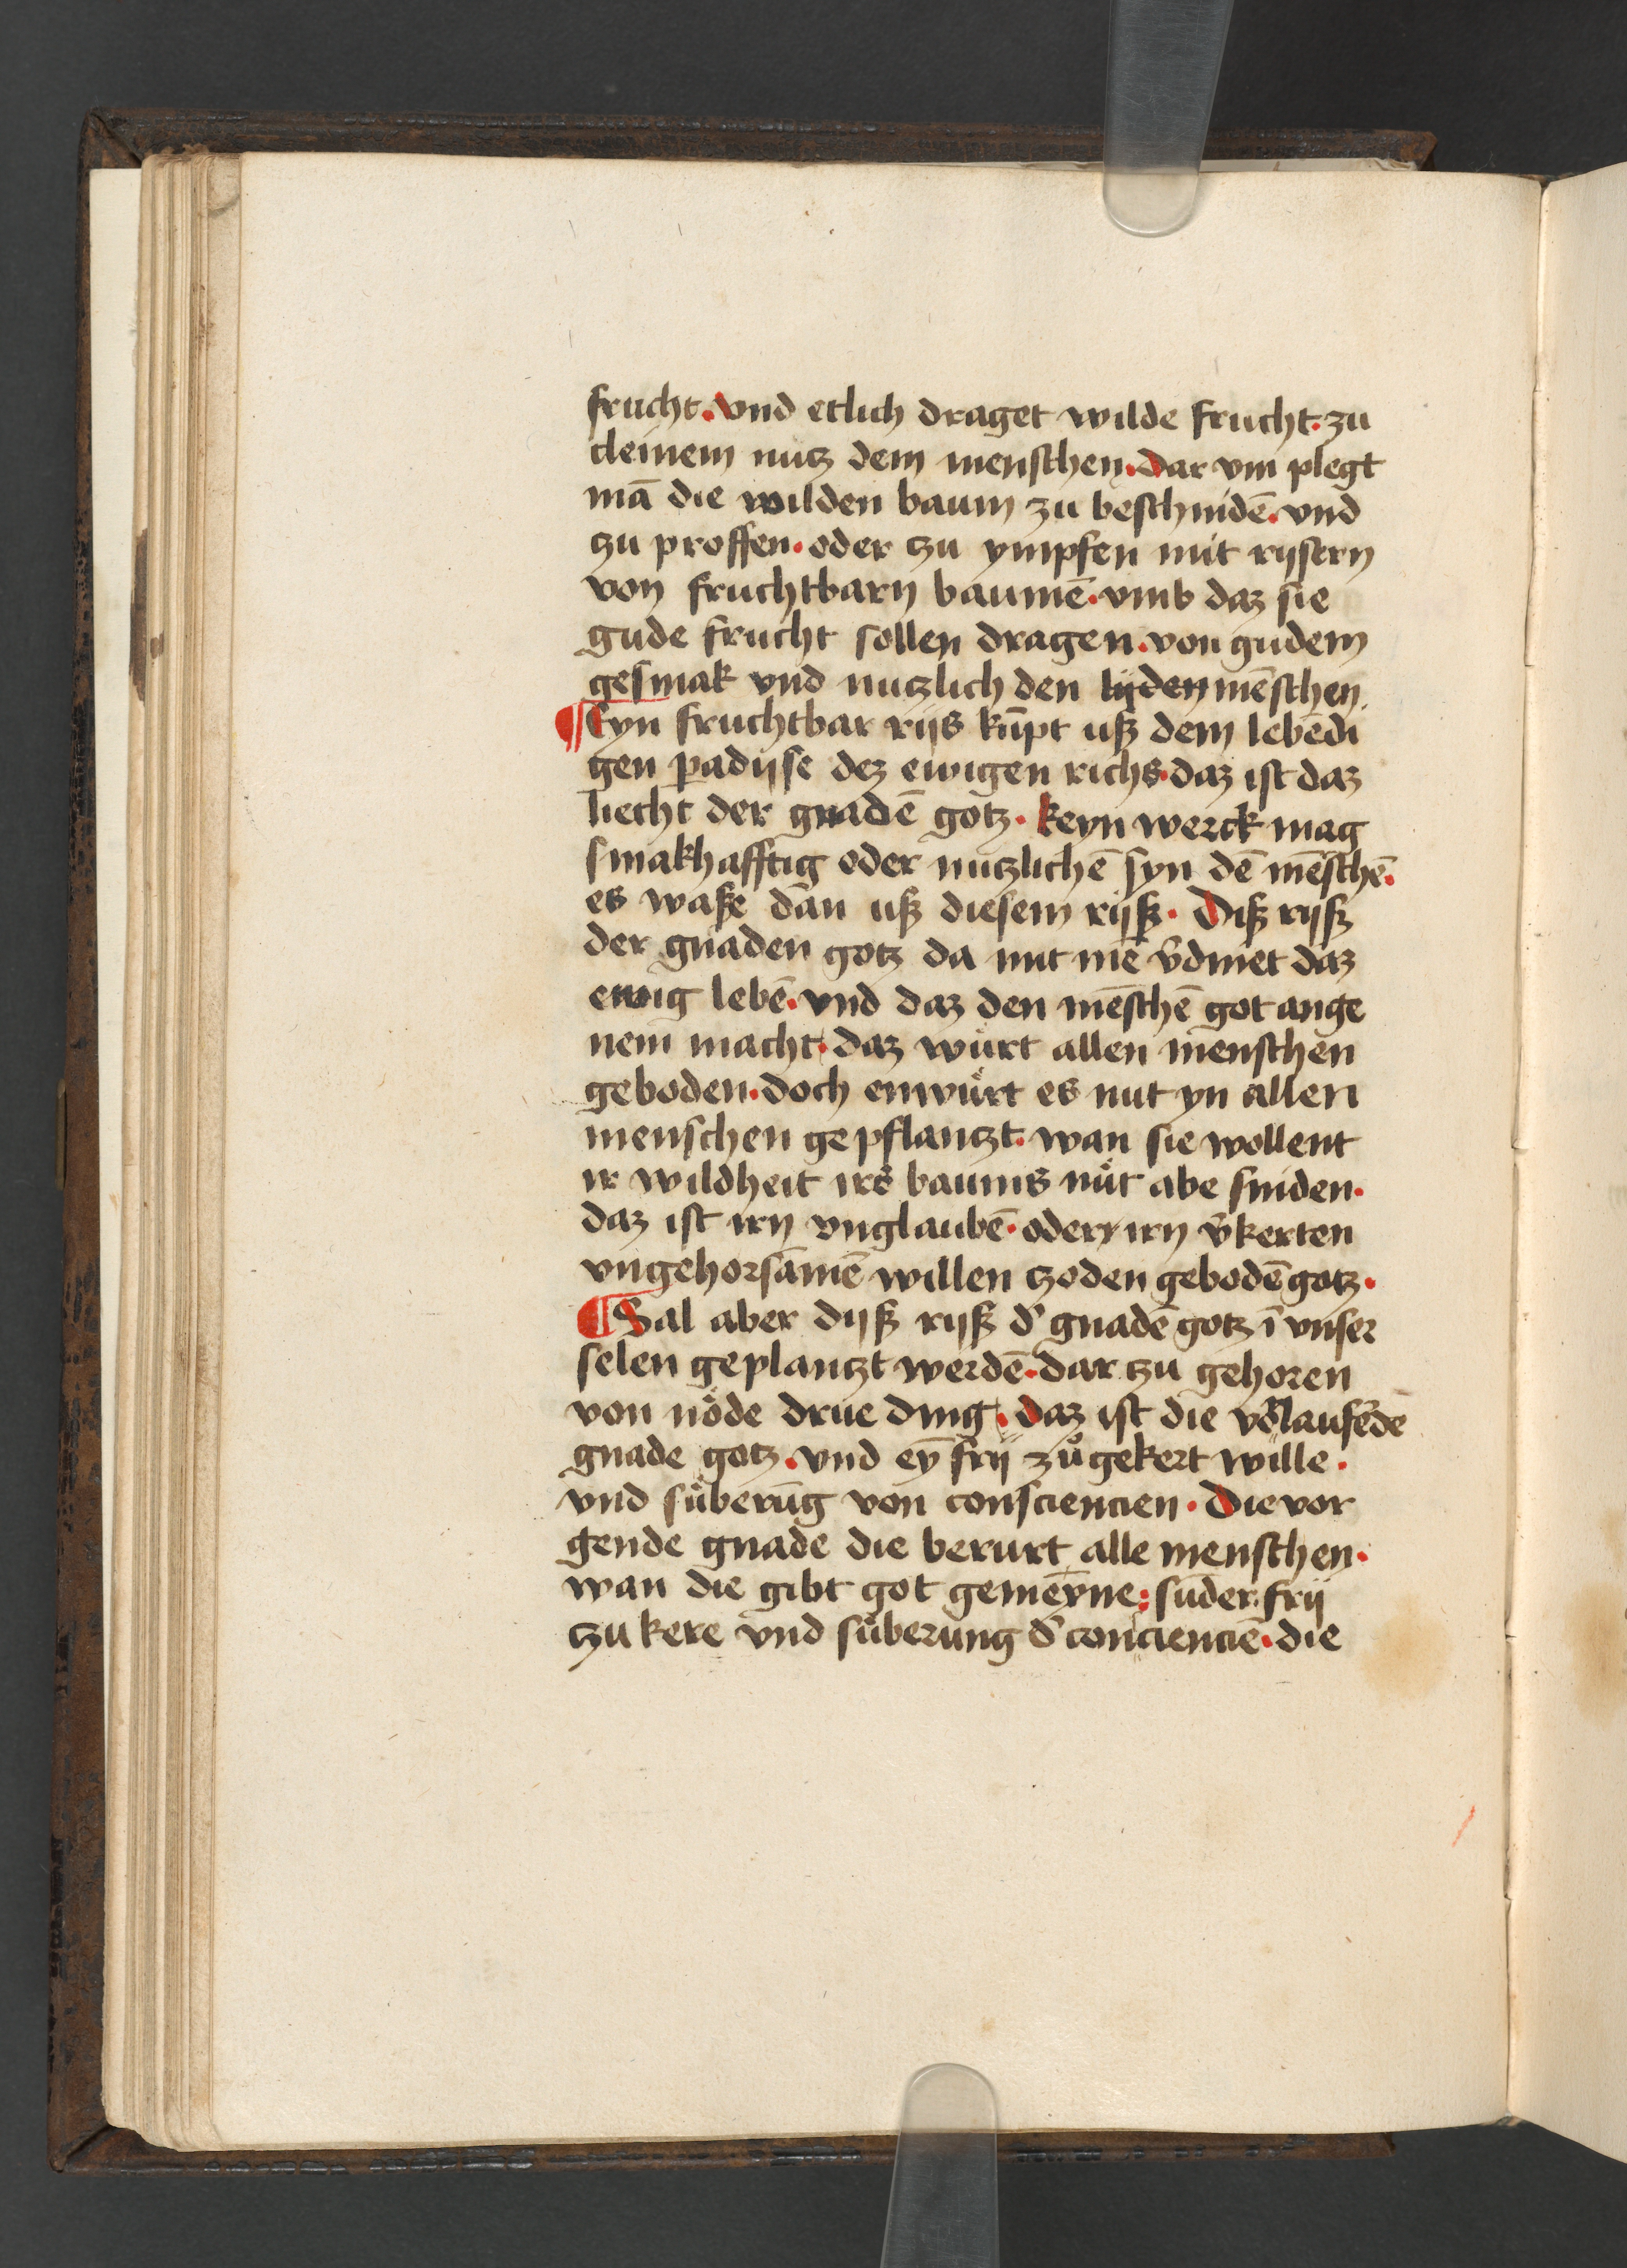 frucht. Vnd etlich draget wilde frucht. zu
cleinem nutz dem menschen. Dar vm plegt
mā die wilden baum zu beschnidē. vnd
zu proffen. oder zu ympfen mit rijsern
von fruchtbarn baumē. vmb daz sie
gude frucht sollen dragen. von gudem
gesmak vnd nutzlich den lijden mēschen.
¶ Eyn fruchtbar rijs kūpt uß dem lebēdi
gen padijse dez ewigen richs. daz ist daz
liecht der gnadē gotz. keyn werck mag
smakhafftig oder nutzlichē syn dē mēschē.
es waße dan uß diesem rijß. Diß rijß
der gnaden gotz da mit mē v̄dinet daz
ewig lebē. vnd daz den mēschē got ange
nem macht. daz wůrt allen menschen
geboden. doch enwůrt es nut yn allen
menschen gepflantzt. wan sie wollent
ir wildheit irs baums nůt abe sniden.
daz ist irn vnglaubē. odern irn v̄kerten
vngehorsamē willen tzoden gebodē gotz.
¶ Sal aber dijß rijß d' gnadē gotz ī vnser
selen geplantzt werdē. dar tzu gehoren
von nöde drue ding. daz ist die vorlaufēde
gnade gotz. vnd eȳ frij zů gekert wille.
vnd sůberūg von consciencien. Die vor
gende gnade die berurt alle menschen.
wan die gibt got gemēyne: sūder frij
tzu kere vnd sůberung d' conciencie. die